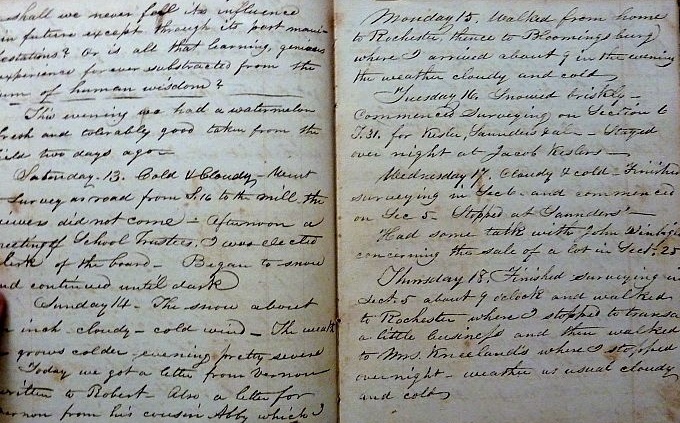 shall we never feel its influence
in future except through its past mani-
estations? Or is all that learning, genious
experience forever substracted from the
um of human wisdom?
This evening we had a watermelon
fresh and tolerably good taken from the
ield two days ago
Saturday 13. Cold & Cloudy - Went
survey a road from S. 16 to the mill, the
iewers did not come - Afternoon a
meeting of School Trustees, I was elected
lerk of the board - Began to snow
nd continued until dark
Sunday 14 - The snow about
inch - cloudy - cold wind - The weath
grows colder evening pretty severe
Today we got a letter from Vernon
written to Robert - Also a letter for
ernon from his cousin Abby which I
Monday 15. Walked from home
to Rochester, thence to Bloomingsburg
where I arrived about 9 in the evening
the weather cloudy and cold
Tuesday 16. Snowed briskly -
commenced surveying on Section 6
T. 31. for Kesler, Saunders & al - Stayed
over night at Jacob Keslers -
Wednesday 17. Cloudy & cold - Finished
surveying in Sec 6 - and commenced
on Sec 5 - Stopped at Saunders' -
Had some talk with John
concerning the sale of a lot in Sect. 25
Thursday 18. Finished surveying in
Sect. 5 about 9 o'clock and walked
to Rochester where I stopped to transa
a little business and then walked
to Mrs. Kneeland's where I stopped
overnight - weather as usual cloudy
and cold